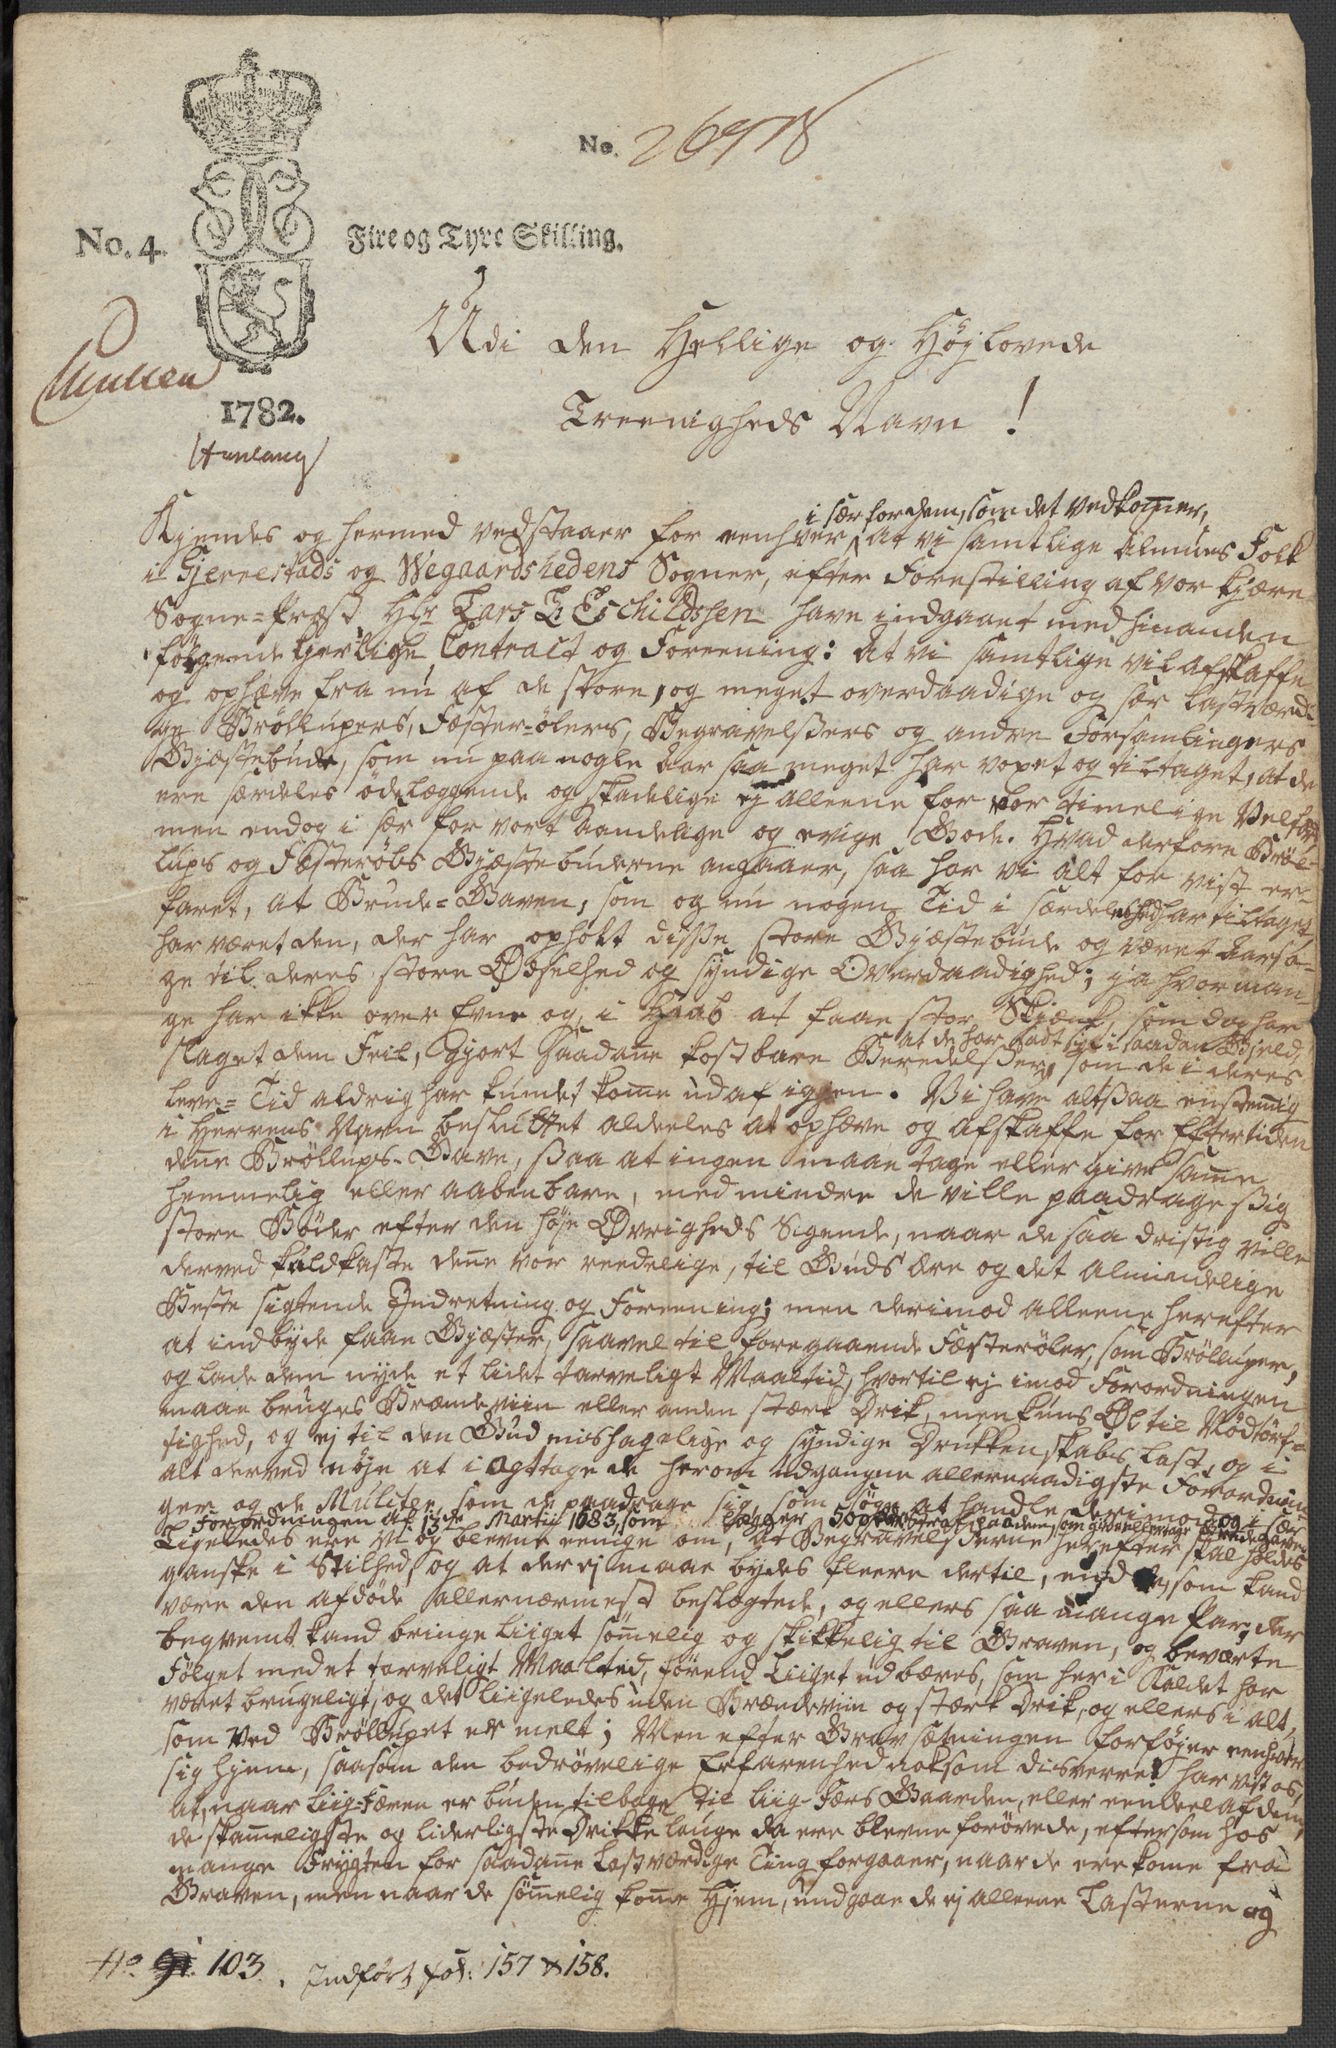 No. 26978
No. 4.
Fire og Tyve Skilling.
1782.
Udi den Hellige og Højlovede
Treenigheds Navn!
i sær for dem, som det vedkommer,
Kjendes og hermed vedstaaer for eenhver at vi samtlige Almues Folk
i Gjerrestads og Wegaardshedens Sogner, efter Forestilling af vor kjære
Sogne-Præst Hr Lars Eschildssen have indgaaet med hinanden
følgende kjerlige Contract og Foreening: At vi samtlige vil afskaffe
og ophæve fra nu af de store, og meget overdaadige og sær lastværdi-
ge Bröllupers, Fæster-ölers, Begravelsers og andre Forsamlingers
Gjæstebude, som nu paa nogle Aar saa meget har voxet og tiltaget, at de
ere særdeles ödelæggende og skadelige ej alleene for vor timelige Velfærd
men endog i sær for vort aandelige og evige Gode. Hvad derfore Bröl-
lups og Fæsteröls Gjæstebuderne angaaer, saa har vi alt for vist er-
faret, at Brude-Gaven, som og nu nogen Tid i særdeleshed har tiltaget,
har været den, der har opholt disse store Gjæstebude og været Aarsa-
ge til deres store Ödselhed og syndige Overdaadighed; ja hvor man-
ge har ikke over Evne og i Haab at faae stor Skjænk, som dog har
slaget dem Feil, gjort saadane kostbare Beredelser, at de har sadt sig i saadan Gjeld,
som de i deres
Leve-Tid aldrig har kundet kome ud af igjen. Vi have altsaa eenstemig
i Herrens Navn besluttet aldeeles at ophæve og afskaffe for Eftertiden
dene Bröllups-Gave, saa at ingen maae tage eller give same
hemmelig eller aabenbare, med mindre de ville paadrage sig
store Böder efter den höje Övrigheds Sigende, naar de saa dristig ville
derved kuldkaste dene vor reedelige, til Guds Ære og det almindelige
Beste sigtende Indretning og Foreening; men derimod alleene herefter
at indbyde faae Gjæster, saavel til foregaaende Fæsteröler, som Bröllupper,
og lade dem nyde et lidet tarveligt Maaltid, hvortil ej imod Forordningen
maae bruges Brændeviin eller anden stærk Drik, men kuns Öl til Nödtörf-
tighed, og ej til den Gud mishagelige og syndige Drukkenskabs Last, og i
alt derved nöje at i agttage de herom udgangne allernaadigste Forordnin-
ger og de Mulcter, som de paadrage sig, som söge at handle derimod, og i sær
Forordningen af 13de Martii 1683, som lægger 50 Straf paa dem, som give eller tage Brude Gaver.
Ligeledes ere vi og blevne eenige om, at Begravelserne herefter skal holdes
ganske i Stilhed, og at der ej maae bydes fleere dertil, end de, som kand
være den afdöde allernærmest beslægtede, og ellers saa mange Par, der
beqvemt kand bringe Liiget sömmelig og skikkelig til Graven, og beværte
Fölget med et tarveligt Maaltid, förend Liiget udbæres, som her i Kaldet har
været brugeligt, og det liigeledes uden Brændeviin og stærk Drik, og ellers i alt,
som ved Bröllupet er melt; Men efter Gravsætningen forföjer eenhver
sig hjem, saasom den bedrövelige Erfarenhed noksom disverre! har vist os,
at, naar Liig-Færen er buden tilbage til Liig-Færs Gaarden, eller eendeel af dem,
de skammeligste og liderligste Drikke lauge da ere blevne forövede, eftersom hos
mange Frygten for saadane lastværdige Ting forgaaer, naar de ere kome fra
Graven, men naar de sömmelig kome Hjem, undgaae de ej alleene Lasterne og
No 103. Indfört fol: 157 & 158.